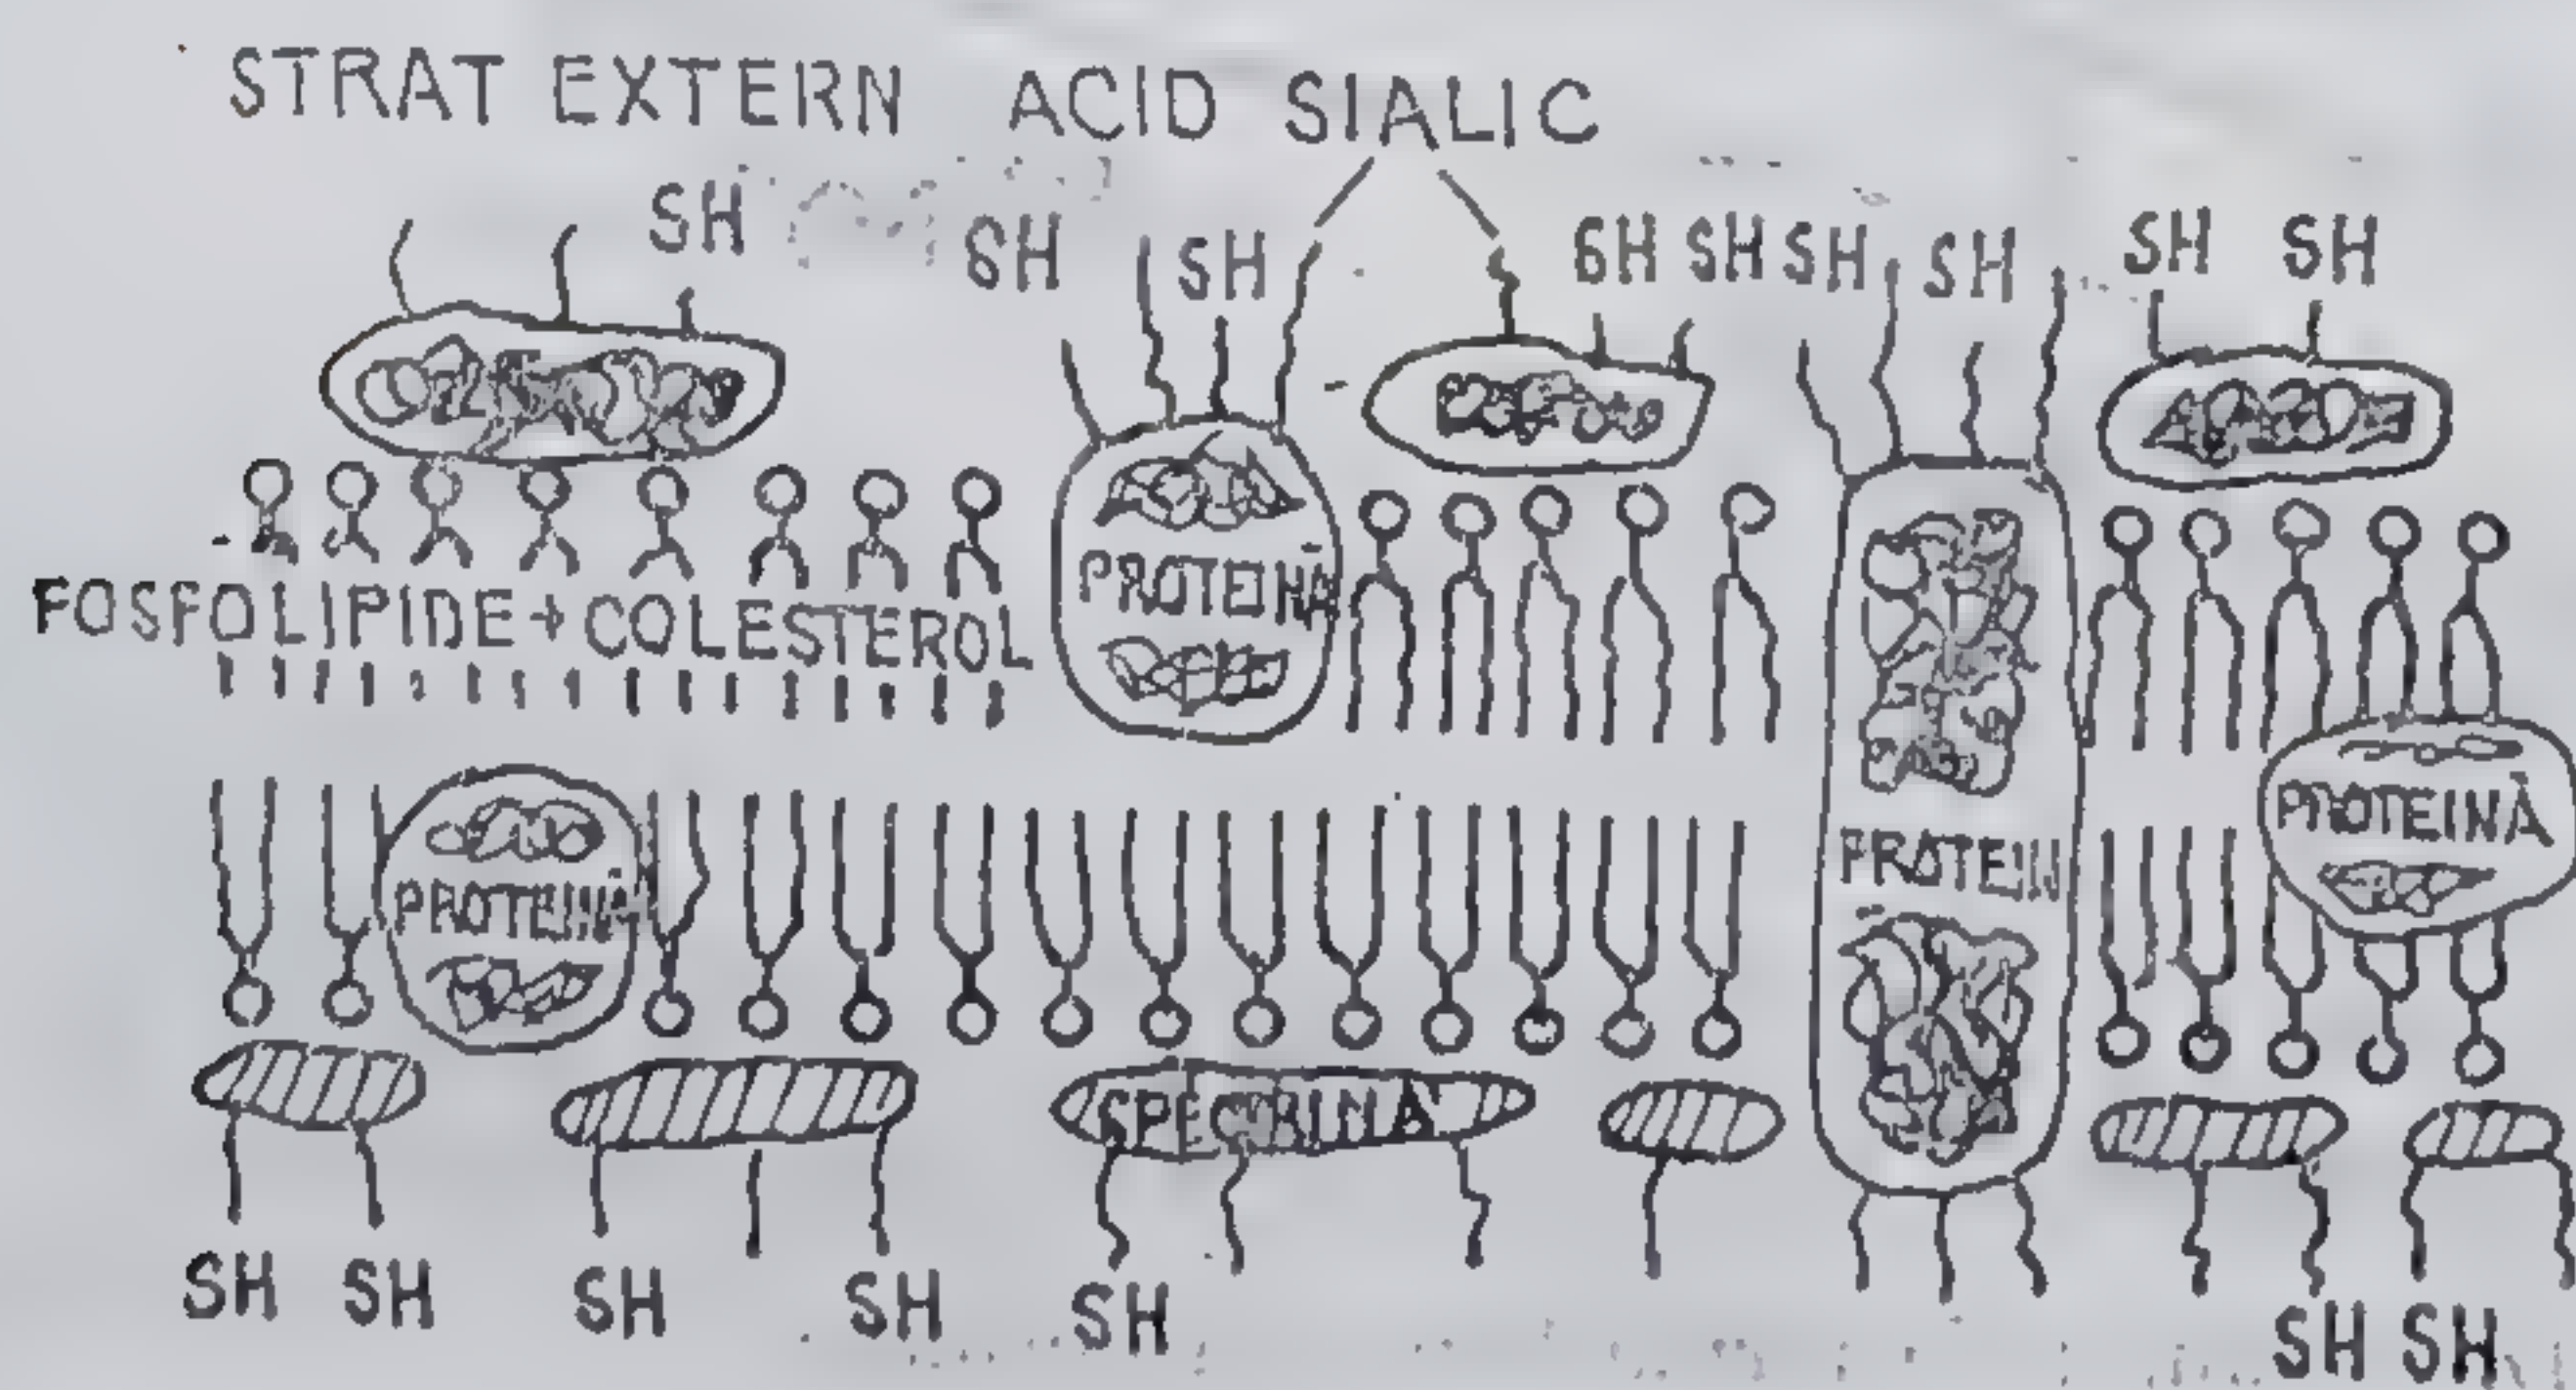 STRAT EXTERN ACID SIALIC
SH SH SH SH SH SH SH SH SH
FOSFOLIPIDE + COLESTEROL
PROTEINĂ
PROTEINĂ
PROTEIN
PROTEINĂ
SPECTRINA
SH SH SH SH SH SH SH